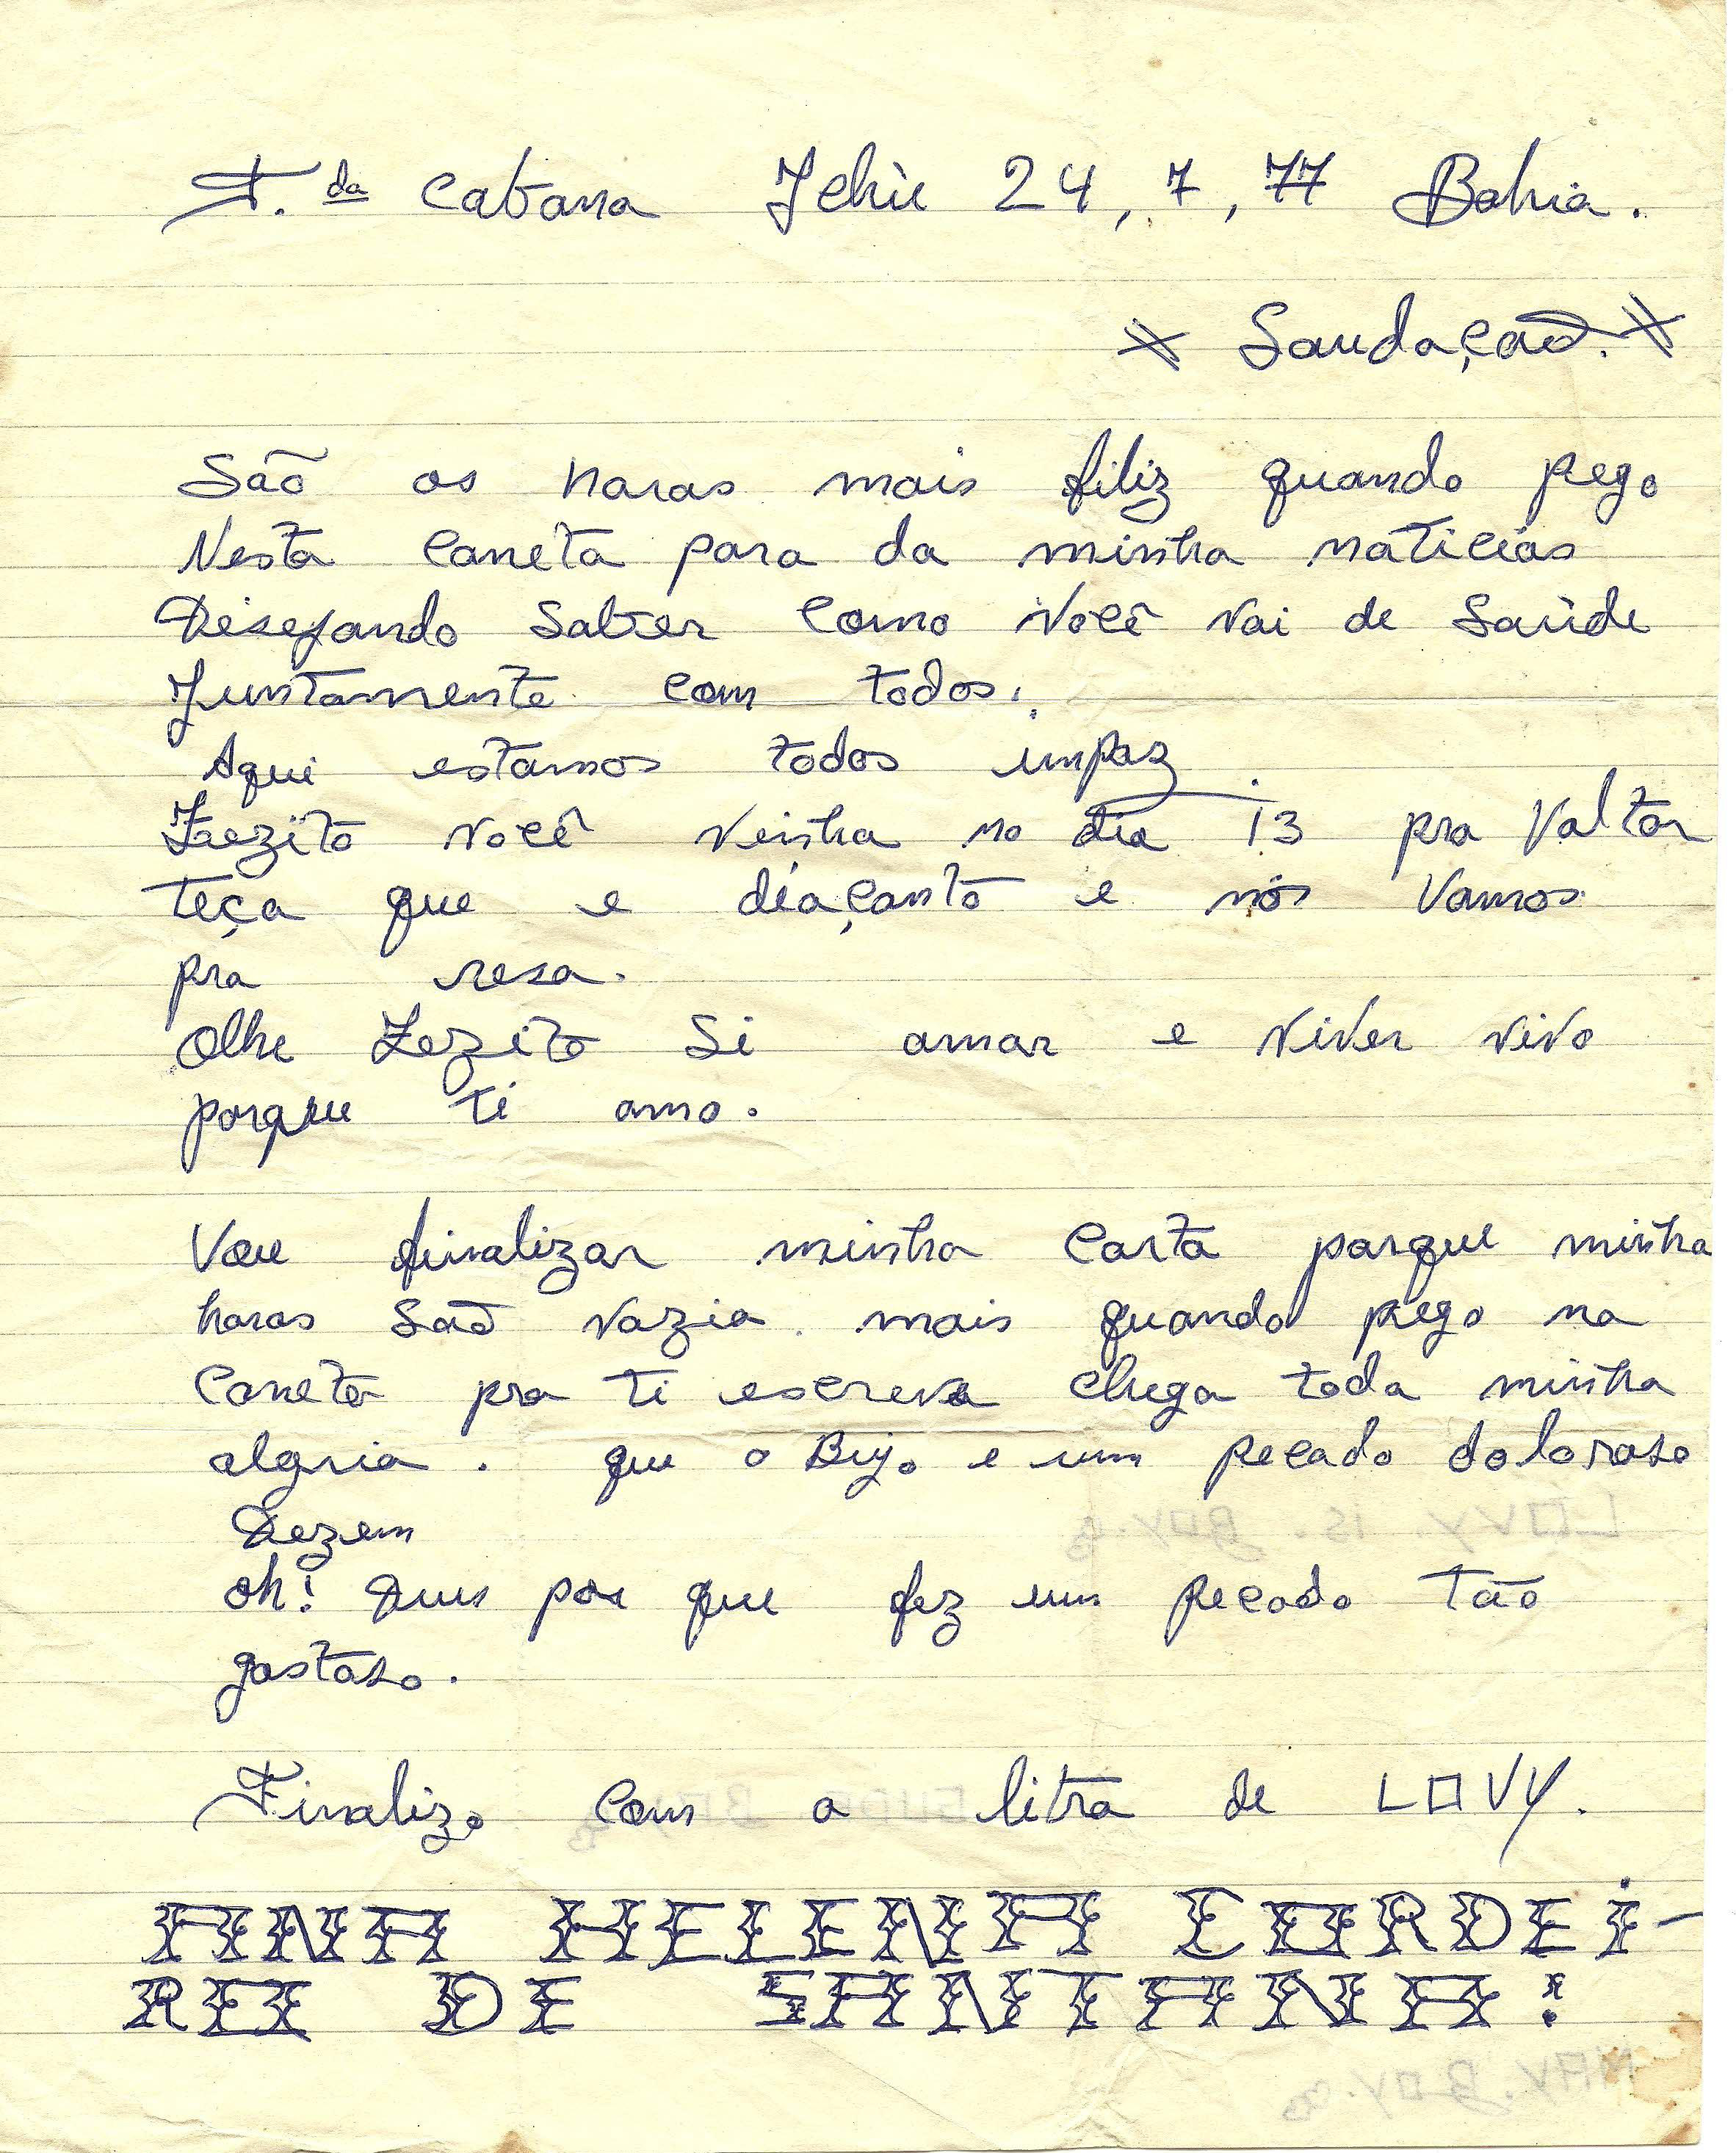 F. da Cabana Ichù 24, 7, 77 Bahia.
Saudação.
São as horas mais filiz quando pego
Nesta Caneta para da minha noticias
Desejando Saber Como Você Vai de Saùde
Juntamente com todos.
Aqui estamos todos impaz.
Zezito Você Veinha no dia 13 pra Valtar
teça que e diaçanto e nós Vamos
pra resa.
Olhe Zezito Si amar e viver vivo
porque ti amo.
Vou finalizar minha Carta porque minha
horas São vazia mais quando pego na
Caneta pra ti escreva chega toda minha
algria. que o Bijo e um pecado doloroso
Dezem
oh! Deus por que fez um pecado tão
gostoso.
Finalizo com a litra de LOVY.
ANA HELENA CORDEi-
RO DE SANTANA!